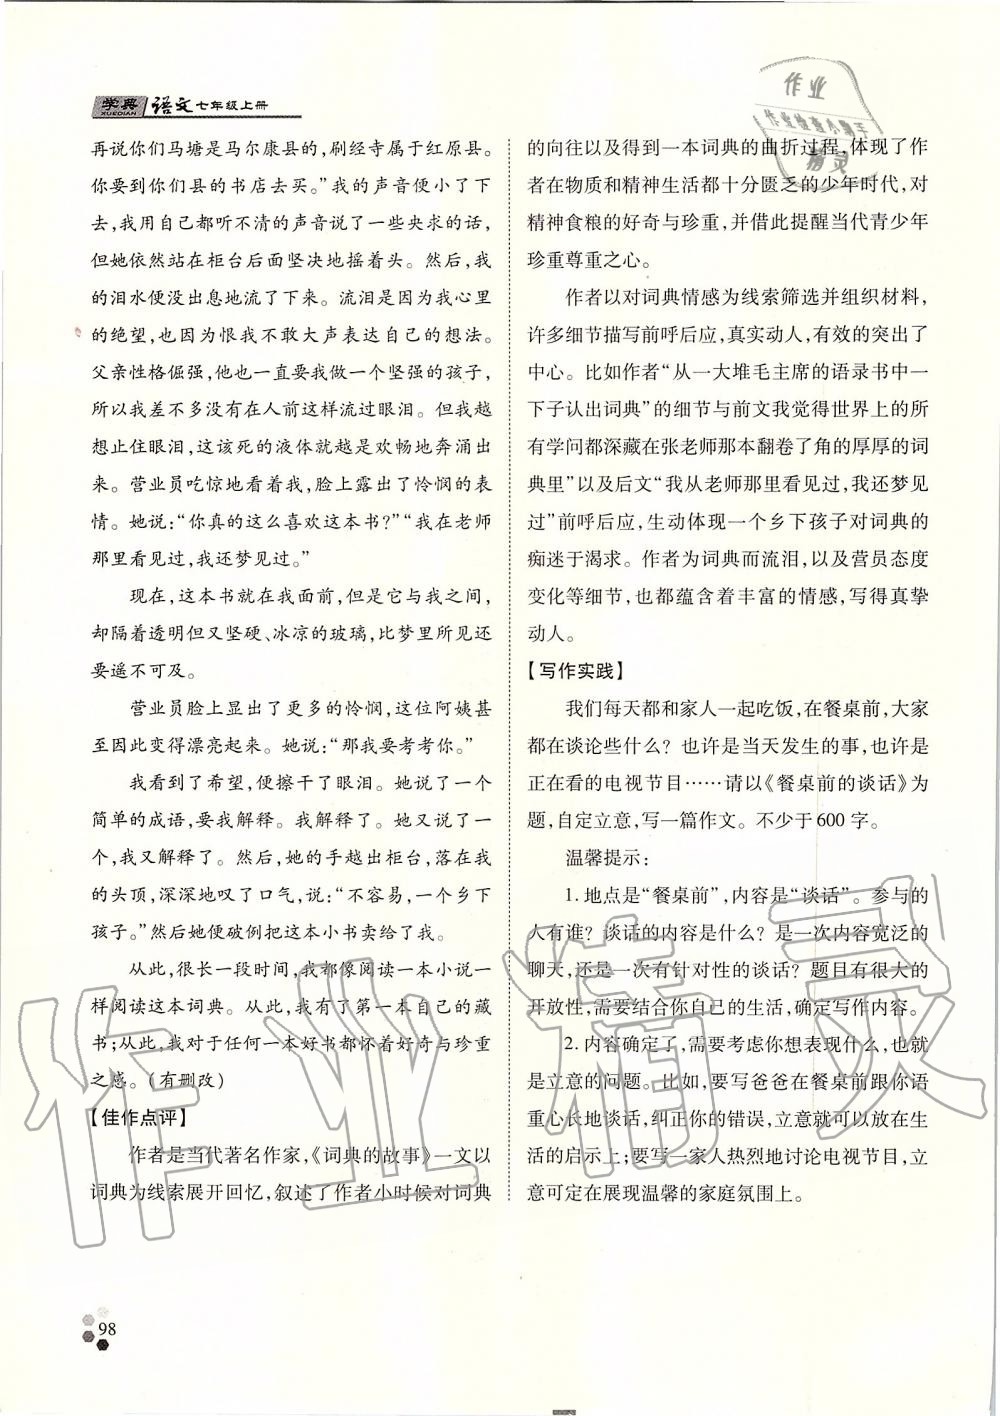 学典
XUEDIAN
语文七年级上册
作业
作业检查小助手
精灵
再说你们马塘是马尔康县的,刷经寺属于红原县。
你要到你们县的书店去买。”我的声音便小了下
去,我用自己都听不清的声音说了一些央求的话,
但她依然站在柜台后面坚决地摇着头。然后,我
的泪水便没出息地流了下来。流泪是因为我心里
的绝望,也因为恨我不敢大声表达自己的想法。
父亲性格倔强,他也一直要我做一个坚强的孩子,
所以我差不多没有在人前这样流过眼泪。但我越
想止住眼泪,这该死的液体就越是欢畅地奔涌出
来。营业员吃惊地看着我,脸上露出了怜悯的表
情。她说:“你真的这么喜欢这本书?”“我在老师
那里看见过,我还梦见过。”
现在,这本书就在我面前,但是它与我之间,
却隔着透明但又坚硬、冰凉的玻璃,比梦里所见还
要遥不可及。
营业员脸上显出了更多的怜悯,这位阿姨甚
至因此变得漂亮起来。她说:“那我要考考你。”
我看到了希望,便擦干了眼泪。她说了一个
简单的成语,要我解释。我解释了。她又说了一
个,我又解释了。然后,她的手越出柜台,落在我
的头顶,深深地叹了口气,说:“不容易,一个乡下
孩子。”然后她便破例把这本小书卖给了我。
从此,很长一段时间,我都像阅读一本小说一
样阅读这本词典。从此,我有了第一本自己的藏
书;从此,我对于任何一本好书都怀着好奇与珍重
之感。(有删改)
【佳作点评】
作者是当代著名作家,《词典的故事》一文以
词典为线索展开回忆,叙述了作者小时候对词典
的向往以及得到一本词典的曲折过程,体现了作
者在物质和精神生活都十分匮乏的少年时代,对
精神食粮的好奇与珍重,并借此提醒当代青少年
珍重尊重之心。
作者以对词典情感为线索筛选并组织材料,
许多细节描写前呼后应,真实动人,有效的突出了
中心。比如作者“从一大堆毛主席的语录书中一
下子认出词典”的细节与前文我觉得世界上的所
有学问都深藏在张老师那本翻卷了角的厚厚的词
典里”以及后文“我从老师那里看见过,我还梦见
过”前呼后应,生动体现一个乡下孩子对词典的
痴迷于渴求。作者为词典而流泪,以及营员态度
变化等细节,也都蕴含着丰富的情感,写得真挚
动人。
【写作实践】
我们每天都和家人一起吃饭,在餐桌前,大家
都在谈论些什么?也许是当天发生的事,也许是
正在看的电视节目……请以《餐桌前的谈话》为
题,自定立意,写一篇作文。不少于600字。
温馨提示:
1. 地点是“餐桌前”,内容是“谈话”。参与的
人有谁?谈话的内容是什么?是一次内容宽泛的
聊天,还是一次有针对性的谈话?题目有很大的
开放性,需要结合你自己的生活,确定写作内容。
2. 内容确定了,需要考虑你想表现什么,也就
是立意的问题。比如,要写爸爸在餐桌前跟你语
重心长地谈话,纠正你的错误,立意就可以放在生
活的启示上;要写一家人热烈地讨论电视节目,立
意可定在展现温馨的家庭氛围上。
作业精灵
98